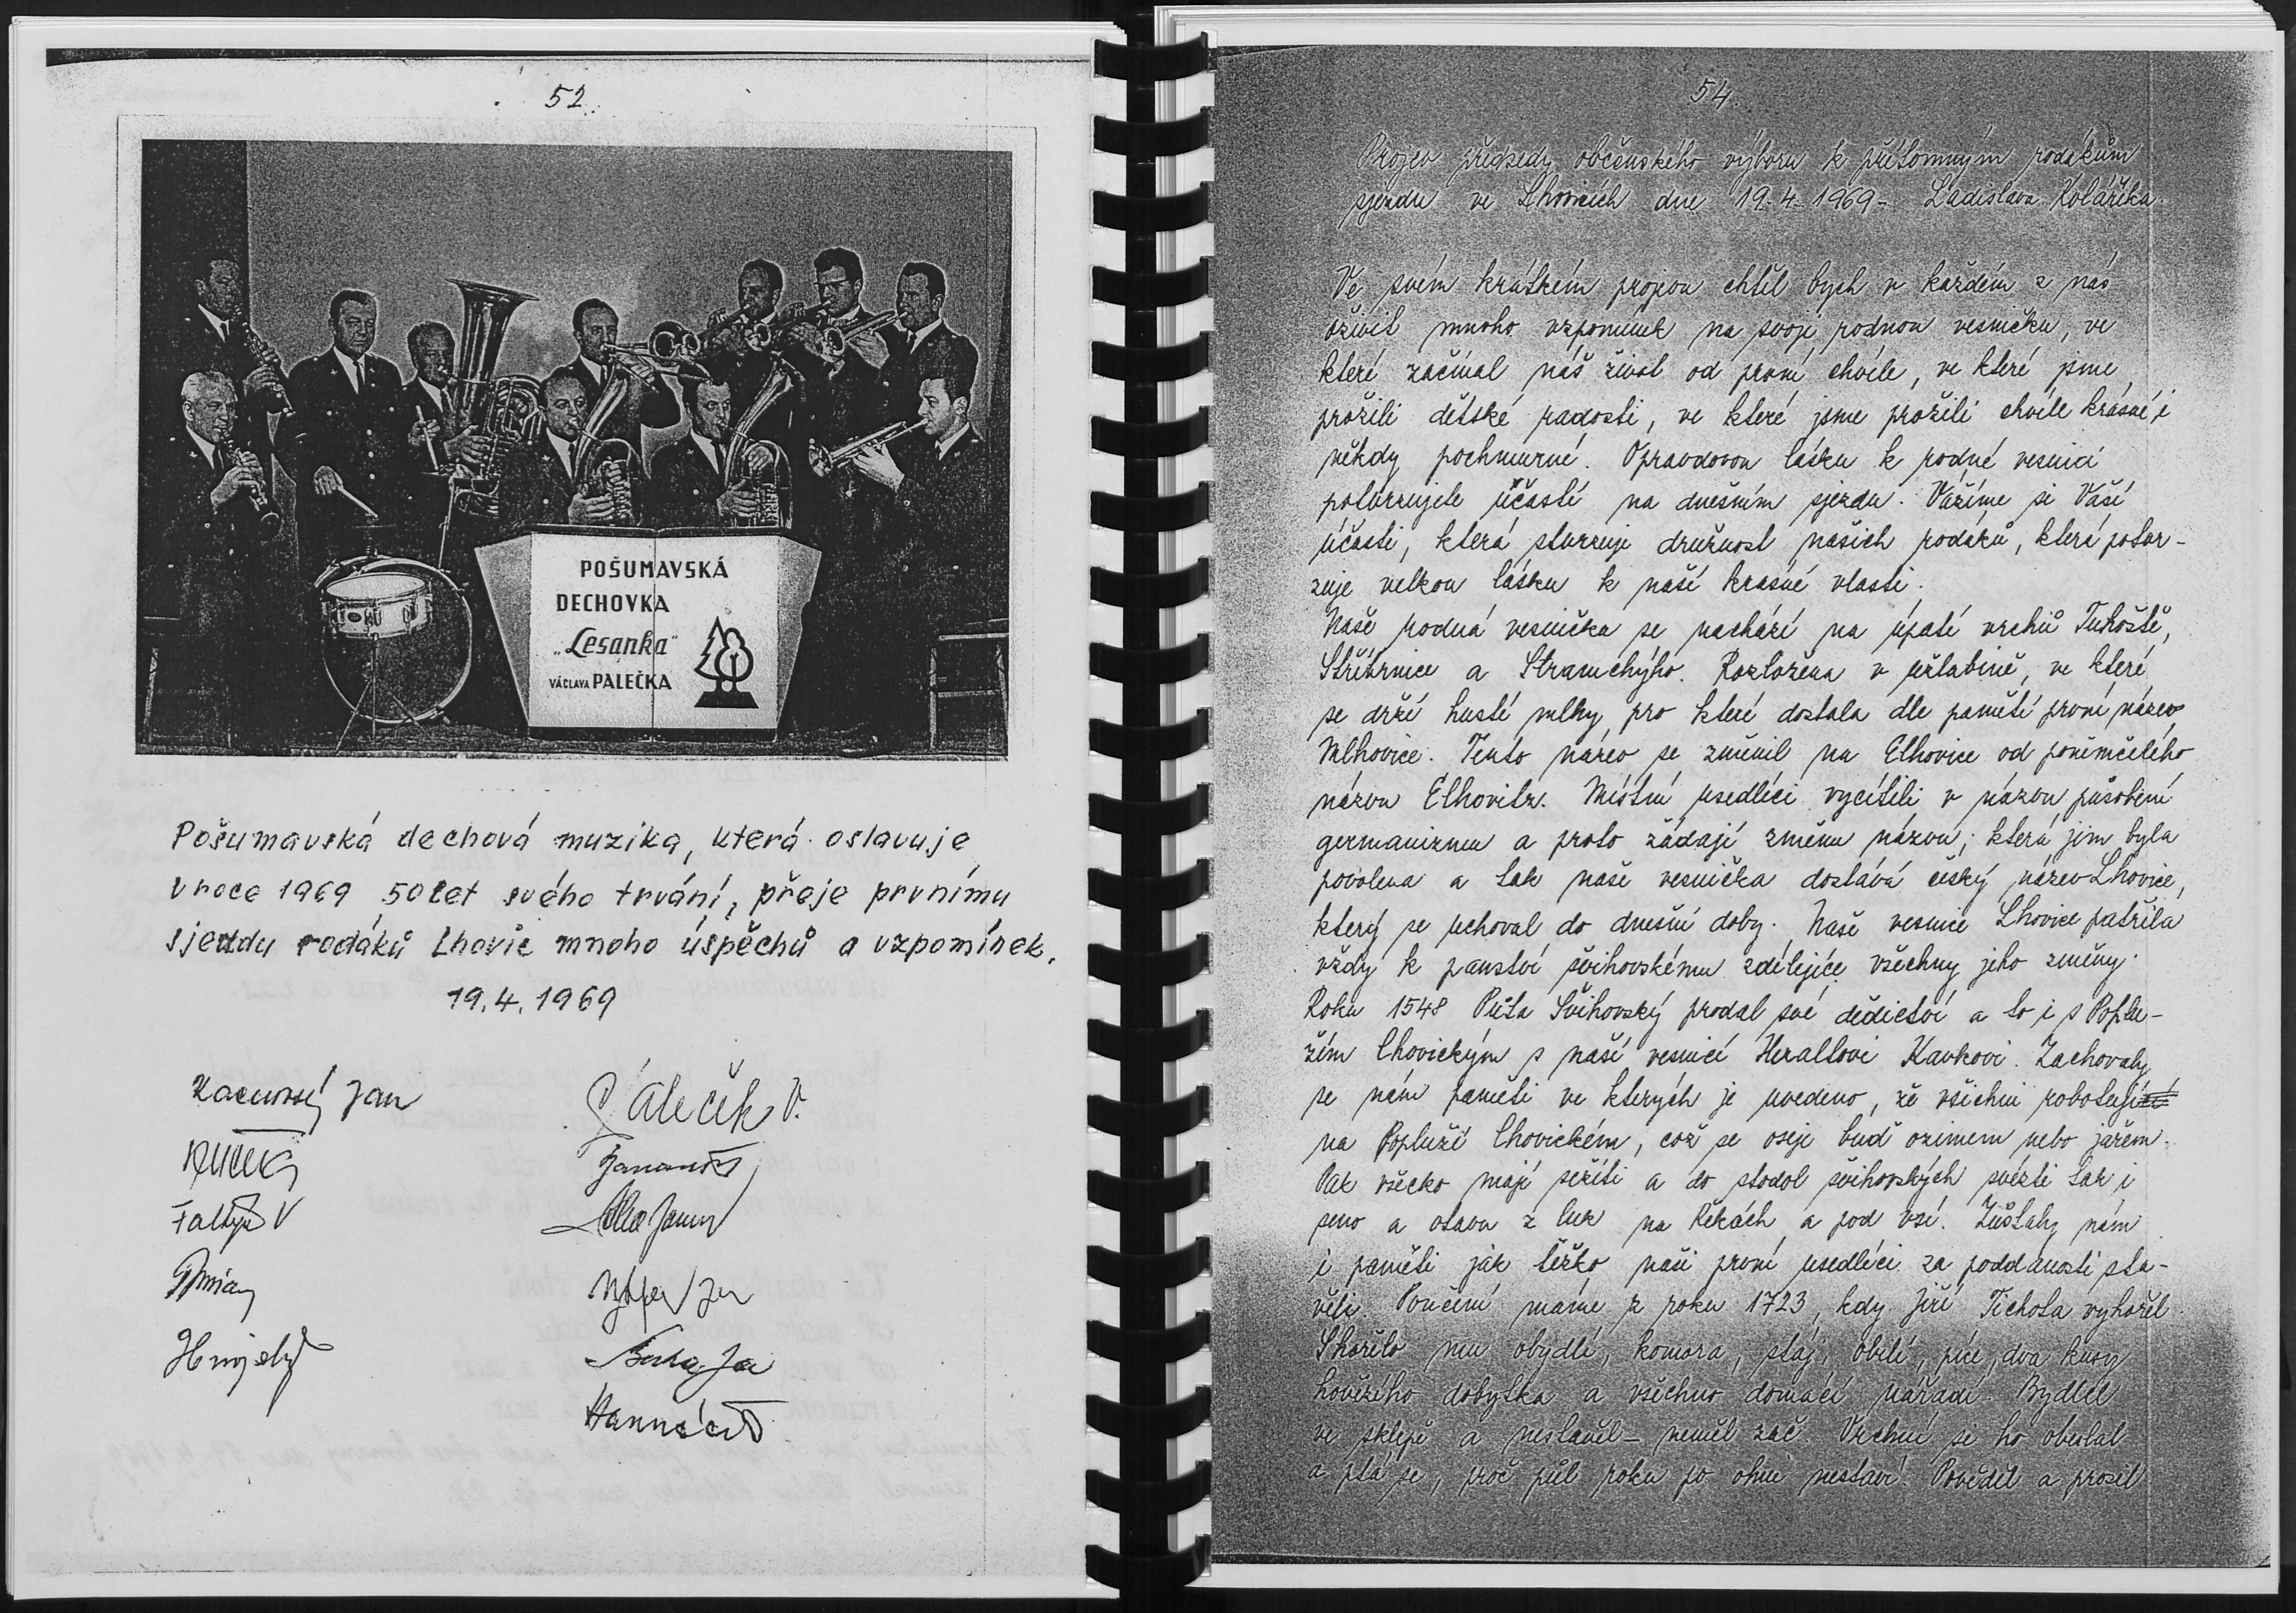 52.
POŠUMAVSKÁ
DECHOVKA
„Lesanka"
VÁCLAVA PALEČKA
Pošumavská dechová muzika, která oslavuje
v roce 1969 50 let svého trvání, přeje prvnímu
sjezdu rodáků Lhovic mnoho úspěchů a vzpomínek.
19. 4. 1969
Jan
Páleček V.
Faltýn V
54.
Projev předsedy občanského výboru k přítomným rodákům
sjezdu ve Lhovicích dne 19-4-1969- Ladislava Kolaříka.
Ve svém krátkém projevu chtěl bych v každém z nás
oživit mnoho vzpomínek na svoji rodnou vesničku, ve
které začínal náš život od první chvíle, ve které jsme
prožili dětské radosti, ve které jsme prožili chvíle krásné i
někdy pochmurné. Opravdovou lásku k rodné vesnici
potvrzujete účastí na dnešním sjezdu. Vážíme si Vaší
účasti, která stvrzuje družnost našich rodáků, která potvr-
zuje velkou lásku k naší krásné vlasti.
Naše rodná vesnička se nachází na úpatí vrchů Tuhoště,
Stříbrnice a Stramchýho. Rozložena v úžlabině, ve které
se drží husté mlhy pro které dostala dle pamětí první název
Mlhovice. Tento název se změnil na Elhovice od poněmčelého
názvu Elhovitz. Místní usedlíci vycítili v názvu působení
germanizmu a proto žádají změnu názvu, která jim byla
povolena a tak naše vesnička dostává český název Lhovice,
který se uchoval do dnešní doby. Naše vesnice Lhovice patřila
vždy k panství švihovskému sdílejíce všechny jeho změny.
Roku 1548 Půta Švihovský prodal své dědictví a to i s Poplu-
žím lhovickým s naší vesnicí Heraltovi Kavkovi. Zachovaly
se nám paměti ve kterých je uvedeno, že všichni robotují
na Popluží lhovickém, což se oseje buď ozimem nebo jařem.
Pak všecko mají sežíti a do stodol švihovských svézti tak i
seno a otavu z luk na Řekách a pod vsí. Zůstaly nám
i paměti jak těžko naši první usedlíci za poddanosti sta-
věli. Poučení máme z roku 1723, kdy Jiří Tichota vyhořel.
Shořelo mu obydlí, komora, stáj, obilí, píce, dva kusy
hovězího dobytka a všechno domácí nářadí. Bydlel
ve sklepě a nestavěl – neměl zač. Vrchní si ho obeslal
a ptá se, proč půl roku po ohni nestaví. Pověděl a prosil